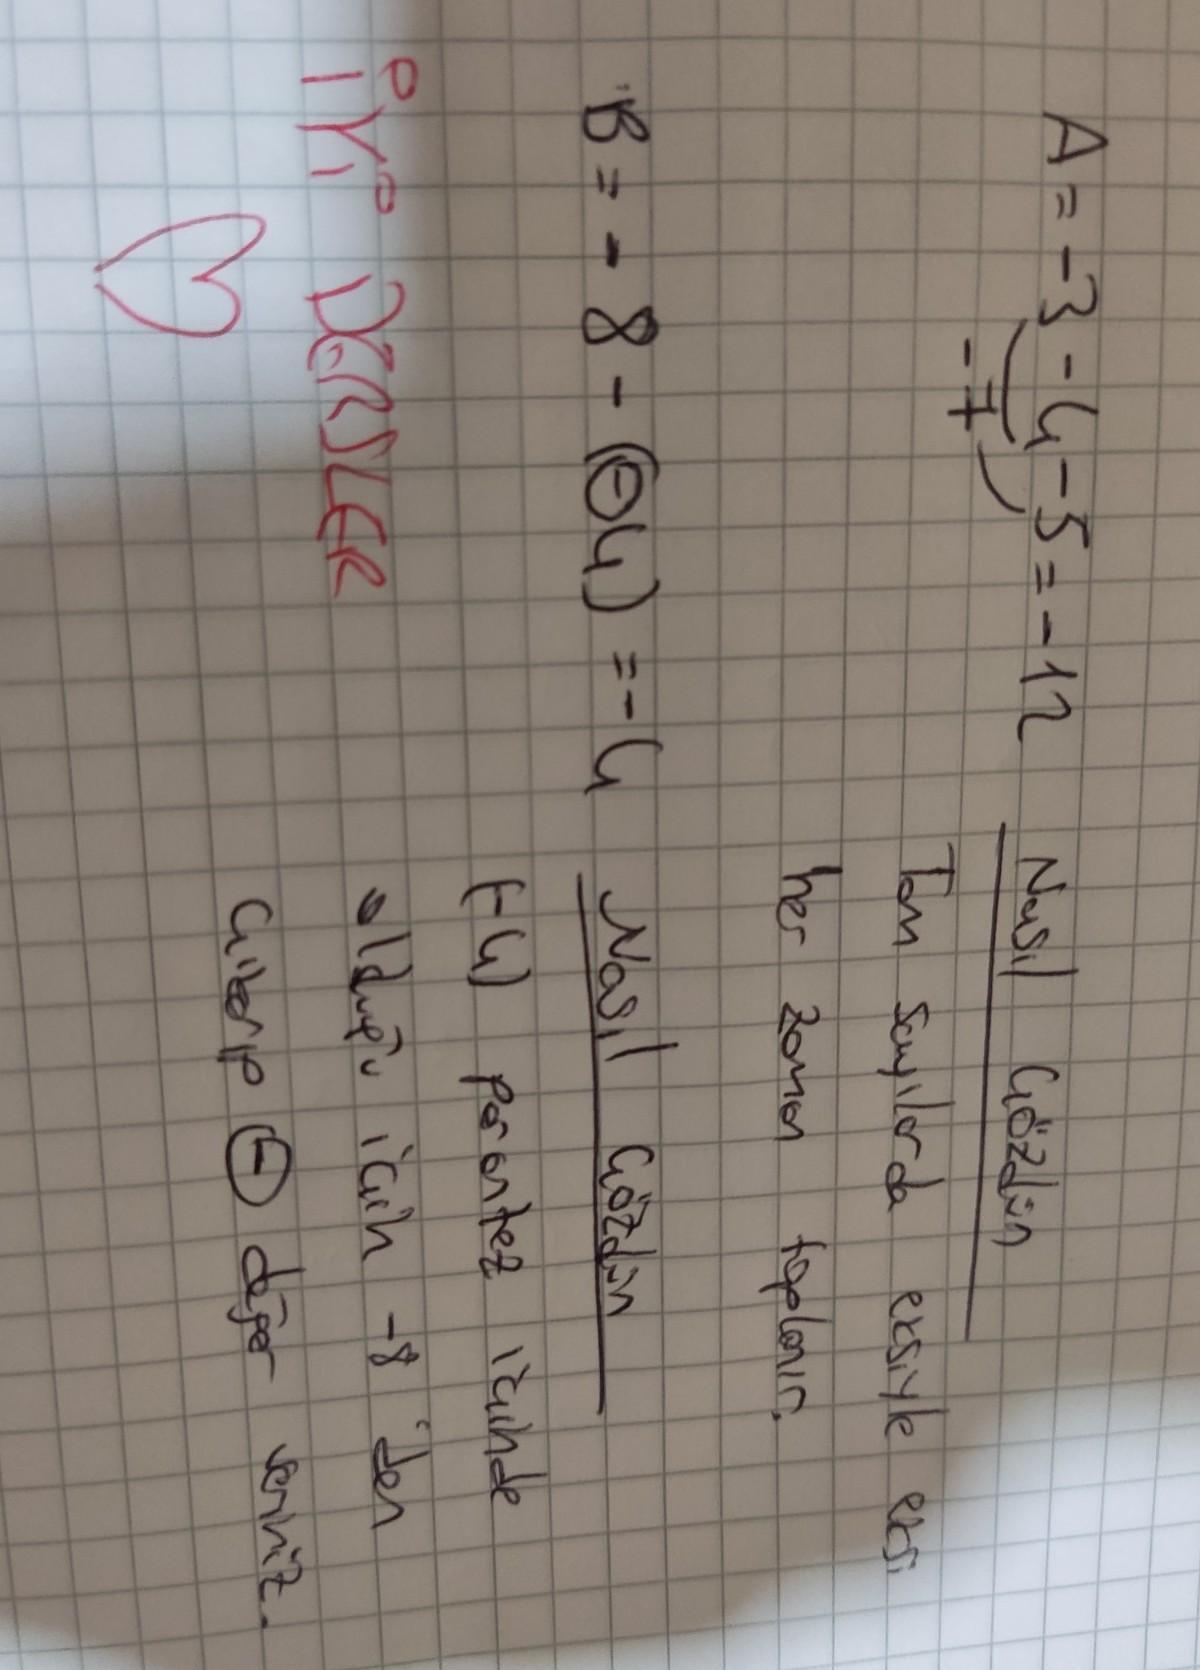 A = -3 - 4 - 5 = -12
-7
Nasıl Çözdün
Tam sayılarda eksiyle eksi
her zaman toplanır.
B = - 8 - (-4) = - 4
Nasıl Çözdün
(-4) parantez içinde
olduğu için -8 'den
Çıkarıp (-) değer veririz.
İYİ DERSLER